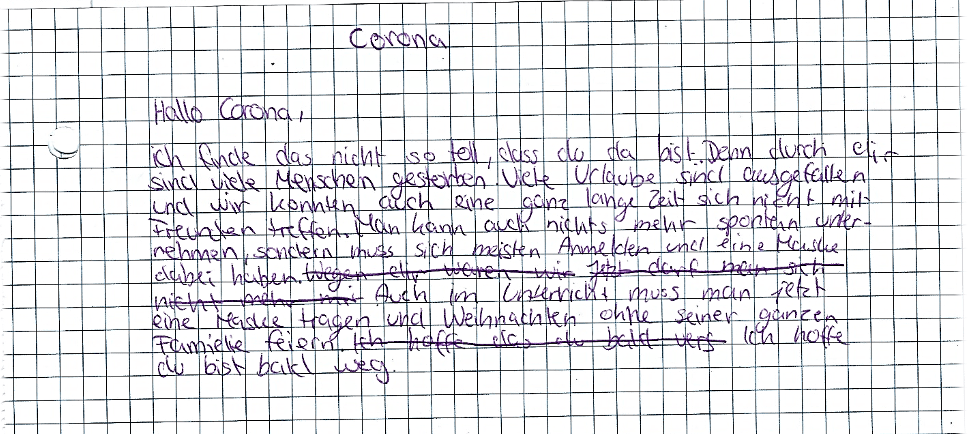 Corona
Hallo Corona,
ich finde das nicht so toll, dass du da bist. Denn durch dir
sind viele Menschen gestorben. Viele Urlaube sind ausgefallen
und wir konnten auch eine ganz lange Zeit sich nicht mit
Freunden treffen. Man kann auch nichts mehr spontan unter-
nehmen, sondern muss sich meisten Anmelden und eine Maske
dabei haben. wegen dir waren wir jetzt darf man sich
nicht mehr mit Auch im Unterricht muss man jetzt
eine Maske tragen und Weihnachten ohne seiner ganzen
Familie feiern. Ich hoffe du bald Ich hoffe
du bist bald weg.